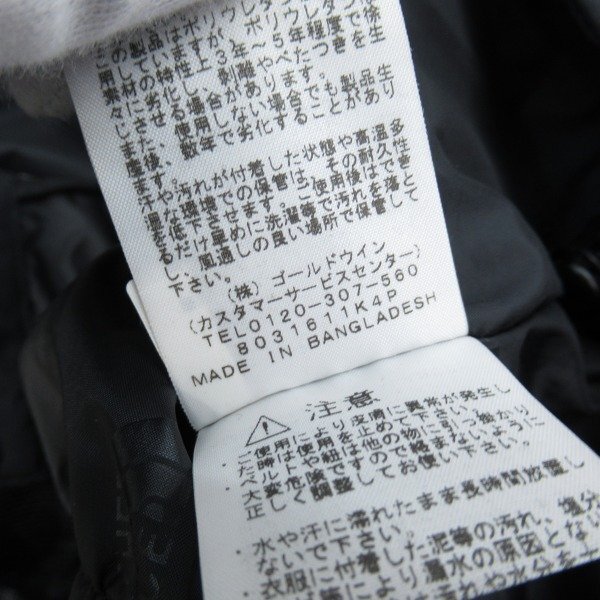 の製品はポリウレタン
の特性上3年～5年程度で
素材の劣化し、剥離やべたつきを生
じる場合があります。
また、使用しない場合でも製品生
産後、数年で劣化することがあり
ます。
汗や汚れが付着した状態や高温多
湿な環境での保管は、その耐久性
を低下させます。ご使用後はでき
るだけ早めに洗濯等で汚れを落と
し、風通しの良い場所で保管して
下さい。
(株) ゴールドウイン
(カスタマーサービスセンター)
TEL0120-307-560
8031611K4P
MADE IN BANGLADESH
注意
・ご使用により皮膚に異常が発生し
た時は使用を止めて下さい。
・ベルトや紐は他の物に引っ掛かり
大変危険ですので絡まないように
正しく調整してお使い下さい。
・水や汗に濡れたまま長時間放置し
ないで下さい。
・衣服に付着した泥等の汚れ、塩分
等により漏水の原因とな
汚れや水分を